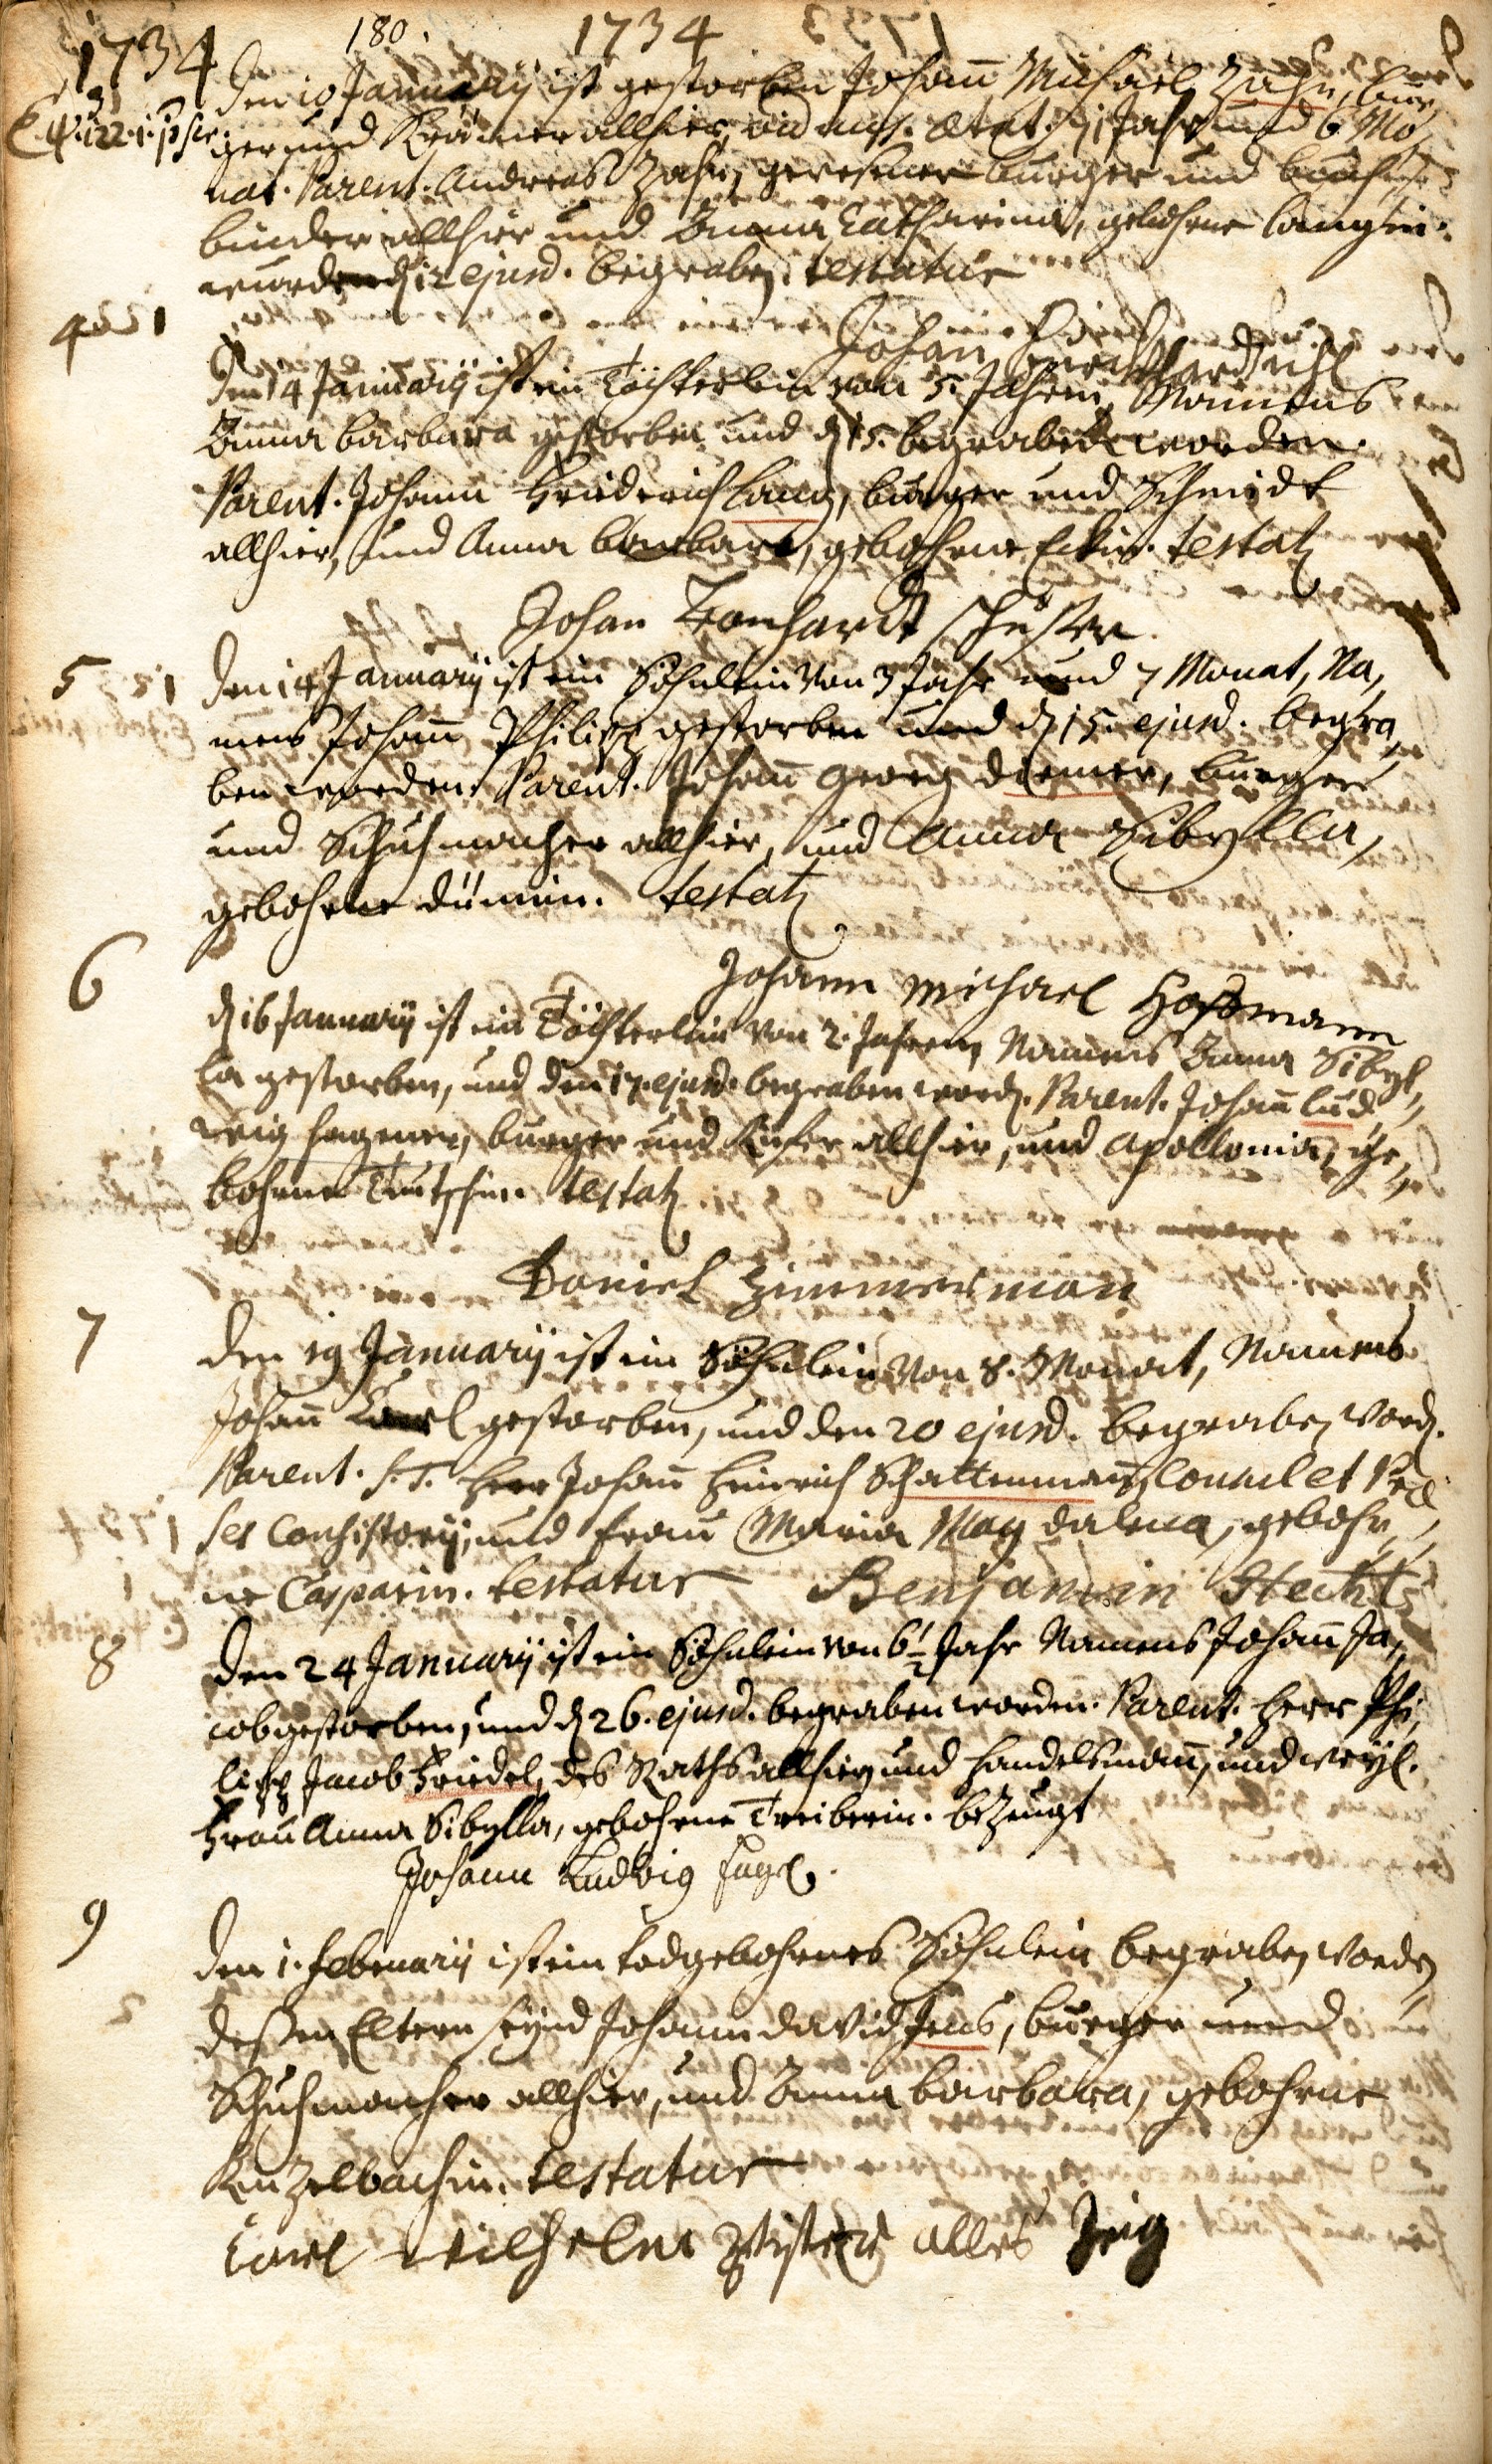 180.
1734
1734
3
Den 10 Januarij ist gestorben Johañ Michael Zahn, bur,
ger und Krämer allhier, ætat. 71 Jahr und 6 Mo,
nat. Parent. Andreas Zahn, gewesener burger und buch,
binder allhier und Anna Catharina, gebohrne Langin.
wurde d. 12 ejusd. begraben. testatur
Johan
4
Den 14 Januarij ist ein Töchterlein von 5. Jahren, Namens
Anna Barbara gestorben und d. 15. begraben worden.
Parent. Johann Friederich Lang, burger und Schmidt
allhier, und Anna Barbara, gebohrne Eckin. testat.
Johan Leonhardt Schuster
5
Den 14 Januarij ist ein Söhnlein von 3 Jahr und 7 Monat, Na,
mens Johañ Philipp gestorben und d. 15. ejusd. begra,
ben worden. Parent. Johañ Georg Diemer, burger
und Schuhmacher allhier, und Anna Sibylla,
gebohrne Dümin. testat.
Johann Michael Hoffmann
6
d. 16 Januarij ist ein Töchterlein von 2. Jahren, Namens Anna Sibyl,
la gestorben, und den 17. ejusd. begraben word. Parent. Johañ Lud,
wig Hagener, burger und Küfer allhier, und Apollonia, ge,
bohrne Teutschin. testat.
Daniel Zimmerman
7
Den 19 Januarij ist ein Söhnlein von 8. Monat, Namens
Johañ Carl gestorben, und den 20 ejusd. begraben word.
Parent. S. T. Herr Johañ Heinrich Schattenmañ, Consul et
ses Consistorij, und Frau Maria Magdalena, gebohr,
ne Casparin. testatur Benjamin Hecht
8
Den 24 Januarij ist ein Söhnlein von 6½ Jahr Namens Johañ Ja,
cob gestorben, und d. 26. ejusd. begraben worden. Parent. Herr Phi,
lipp Jacob Friedel, des Raths allhier, und Handelsmañ, und weyl.
Frau Anna Sibylla, gebohrne Treiberin. bezeugt
Johann Ludwig
9
Den 1. Februarij ist ein todgebohrnes Söhnlein begraben worden,
dessen Eltern seynd Johann David Jens, burger und
Schuhmacher allhier, und Anna Barbara, gebohrne
Kinzelbachin. testatur
Carl Wilhelm alles Zeig